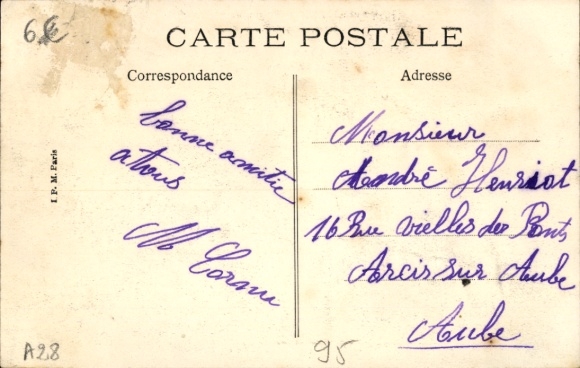 6€
CARTE POSTALE
Correspondance
Adresse
bonne amitie
a tous
M Cornu
Monsieur
André Henriot
16 Rue vielles des Ponts
Arcis sur Aube
Aube
I. P. M. Paris
A28
95